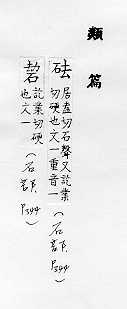 類篇
砝
居盍切石聲又訖業
切硬也文一重音一
(石部 P344)
訖業切硬
也文一
(石部 P344)